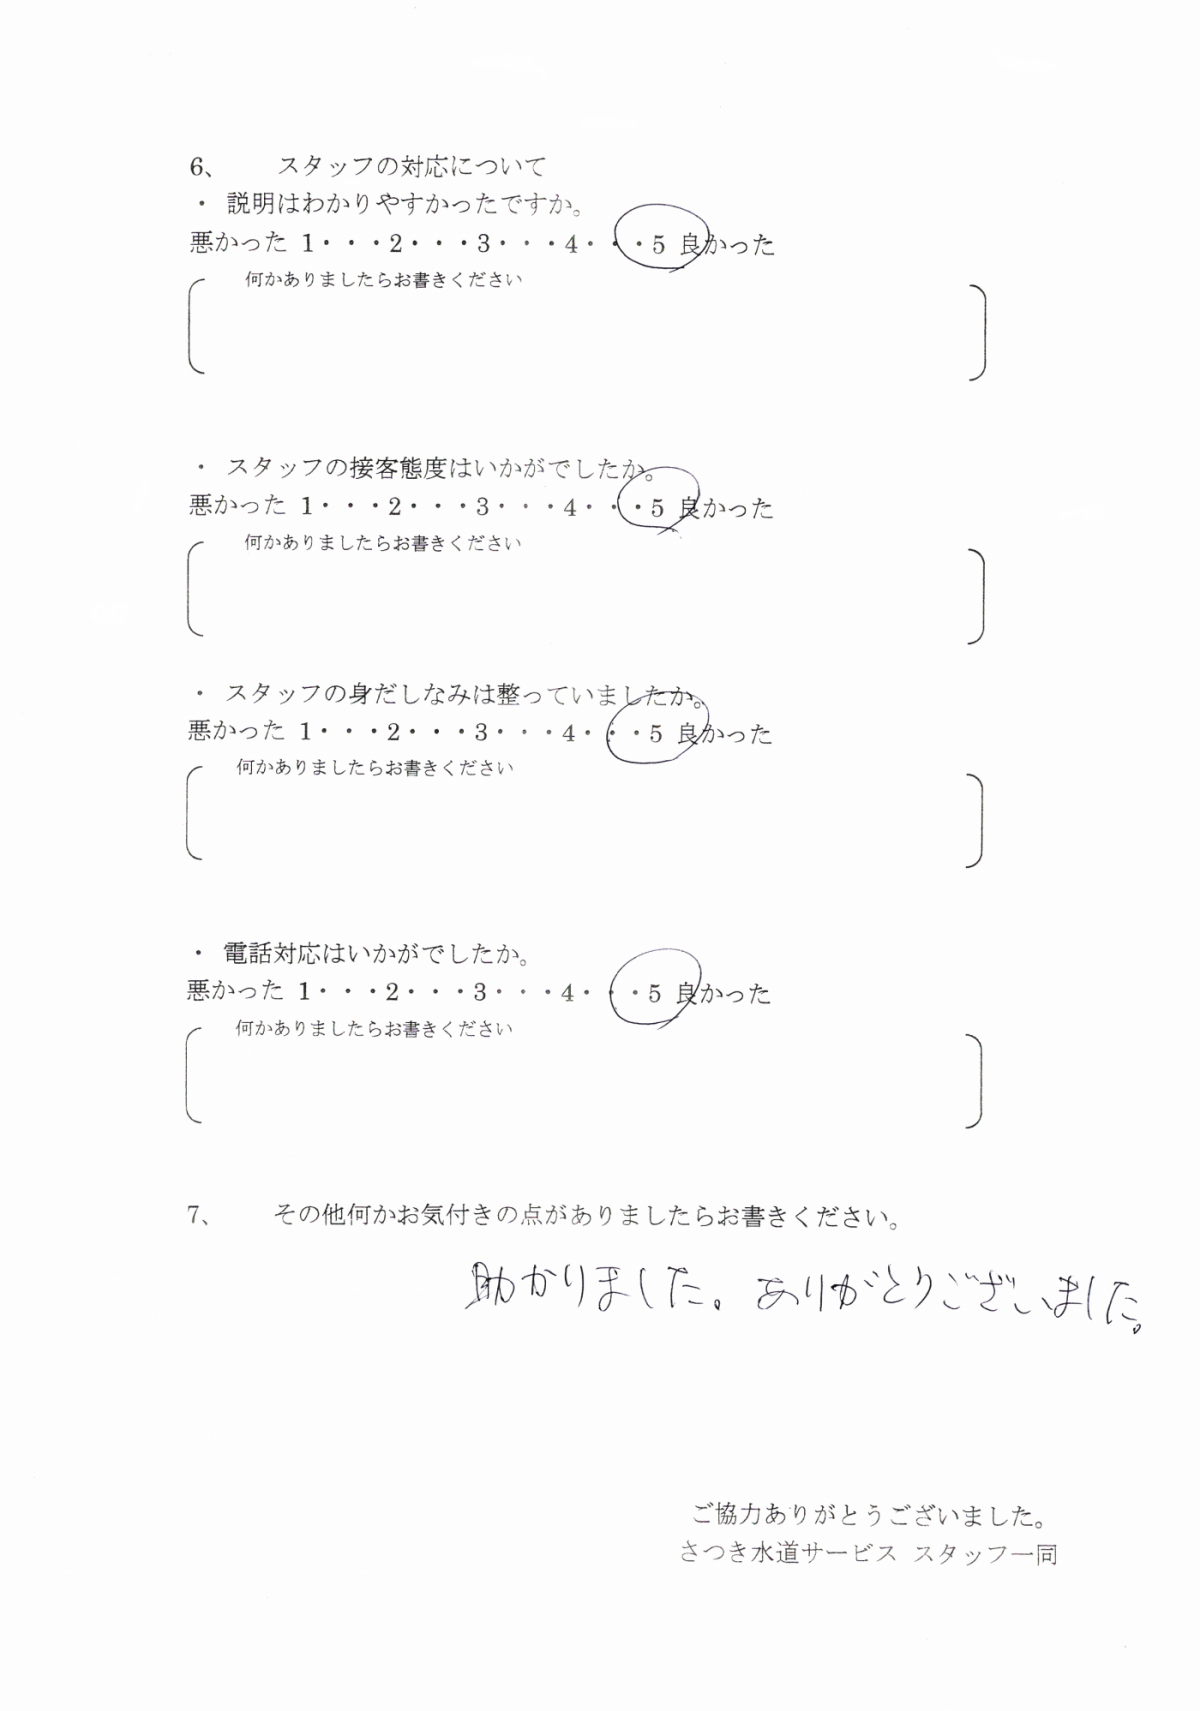 6、　　スタッフの対応について
・ 説明はわかりやすかったですか。
悪かった 1・・・2・・・3・・・4・・・5 良かった
何かありましたらお書きください
・ スタッフの接客態度はいかがでしたか。
悪かった 1・・・2・・・3・・・4・・・5 良かった
何かありましたらお書きください
・ スタッフの身だしなみは整っていましたか。
悪かった 1・・・2・・・3・・・4・・・5 良かった
何かありましたらお書きください
・ 電話対応はいかがでしたか。
悪かった 1・・・2・・・3・・・4・・・5 良かった
何かありましたらお書きください
7、　　その他何かお気付きの点がありましたらお書きください。
助かりました。ありがとうございました。
ご協力ありがとうございました。
さつき水道サービス スタッフ一同